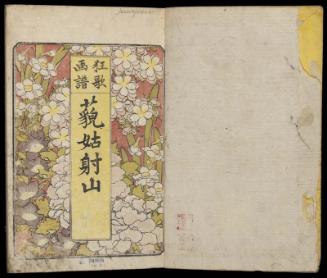 狂歌
画譜
藐姑射山